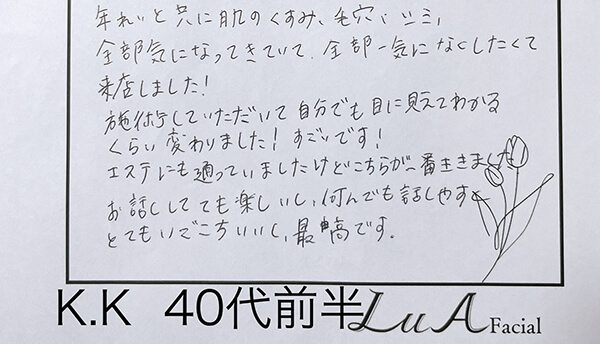 年れいと共に肌のくすみ、毛穴、シミ、
全部気になってきていて、全部一気になくしたくて
来店しました！
施術していただいて自分でも目に見えてわかる
くらい変わりました！すごいです！
エステにも通っていましたけどこちらが一番きました
お話ししてても楽しいし、何んでも話しやすく
とてもいごこちいいし、最高です。
K.K 40代前半 LuA Facial